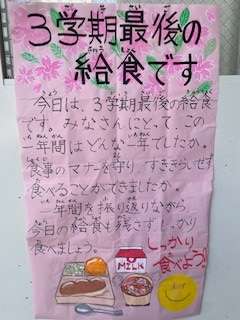 3学期最後の
給食です
今日は、3学期最後の給食
です。みなさんにとって、この
一年間はどんな一年でしたか。
食事のマナーを守り、すききらいせず
食べることができましたか。
一年間を振り返りながら
今日の給食も残さずしっかり
食べましょう。
しっかり
食べよう!
MILK